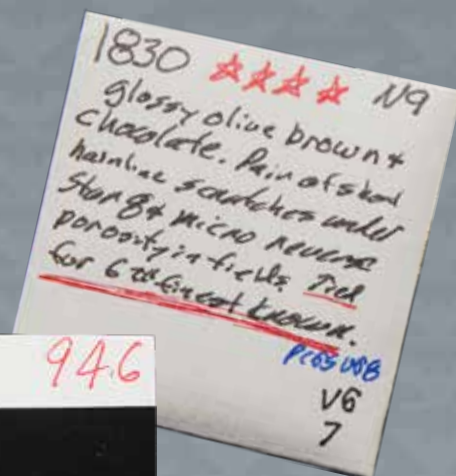 1830 ☆☆☆☆ N9
glossy olive brown +
chocolate. Pair of short
hairline scratches under
Star 8 + micro reverse
porosity in fields. Tied
for 6th finest known.
PCGS VG8
V6
7
94.6